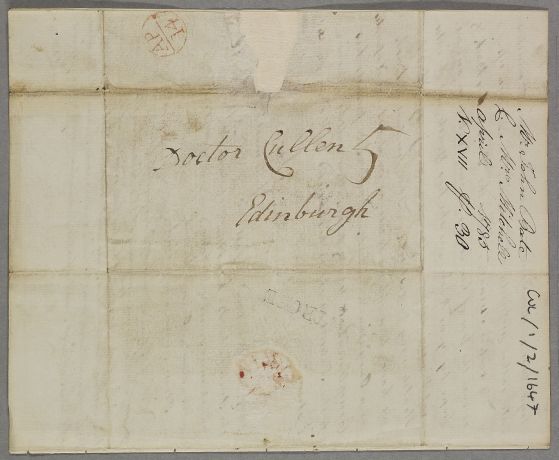 AP
14
Doctor Cullen 5
Edinburgh
Mr John
C. Mrs Mitchell
April 1785
V. XVII f. 30
CUL/1/2/1647